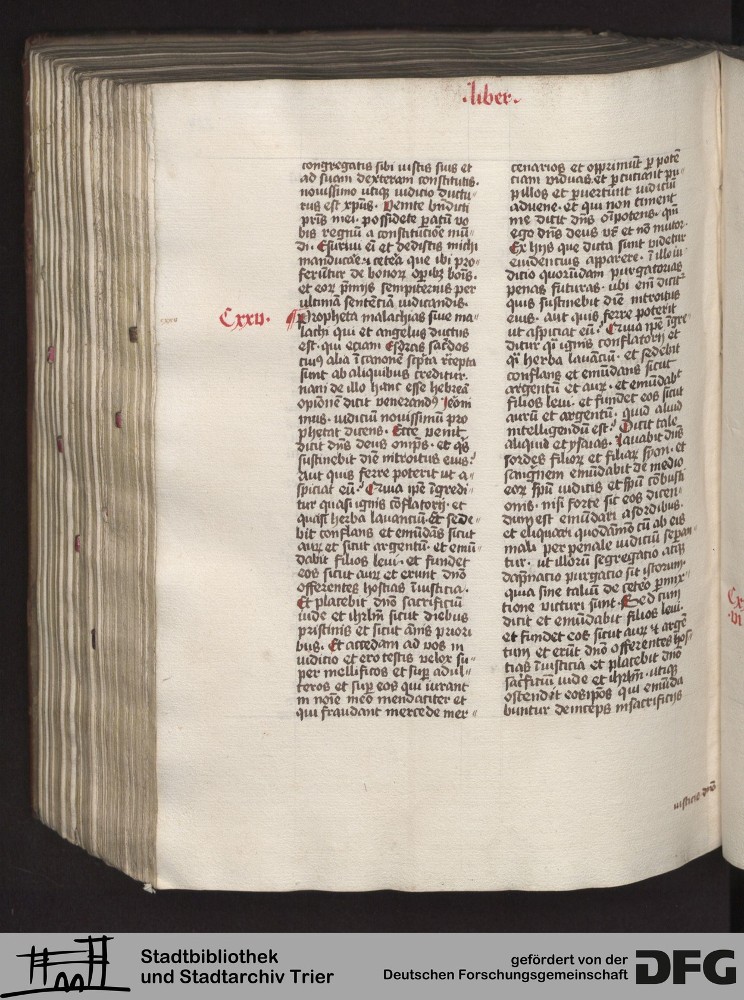 ·liber·
congregatis sibi iustis suis et
ad suam dexteram constitutis·
nouissimo utiqꝫ iudicio dictu-
rus est xp̄us· Venite bn̄dicti
pr̄is mei· possidete paratū vo
bis regnū a constitucōe mū-
di· Esuriui eī et dedistis michi
manducaꝛe ⁊ cetēa que ibi pro-
ferūtur de bonoꝝ opībꝫ boīs·
et eoꝝ pꝛmijs sempiternis per
ultimā sententiā iudicandis·
Cxxv·
¶Propheta malachias siue ma-
lachi qui et angelus dictus
est· qui eciam Esdras sac̄dos
cuiꝰ alia ī canone scp̄ta rc̄epta
sunt ab aliquibus creditur·
nam de illo hanc esse hebreā
opīonē dicit venerandꝰ Ieōni
mus· iudiciū nouissimū pro
phetat dicens· Ecce venit
dicit dn̄s deus omp̄s· et qͥs
sustinebit diē introitus eius?
Aut quis ferre poterit ut a-
spiciat eū? Quia ip̄e īgredi-
tur quasi ignis cōflatorij· et
quasi herba lauanciū· Et sede-
bit conflans et emūdās sicut
auꝝ et sicut argentū· et emū-
dabit filios leui· et fundet
eos sicut auꝝ et erunt dn̄o
offerentes hostias ī iusticia·
Et placebit dn̄o sacrificiū
iude et ihrl̄m sicut diebus
pristinis et sicut ānis priori
bus· Et accedam ad vos in
iudicio et ero testis velox su-
per mellificos et suꝑ adul-
teros et suꝑ eos qui iurant
in noīe meo mendaciter et
qui fraudant mercede mer-
cenarios et opprimūt ꝑ potē
ciam viduas et ꝑcuciant pu-
pillos et ꝑuertunt iudiciū
aduene· et qui non timent
me dicit dn̄s oīpotens· qm̄
ego dn̄s deus vr̄ et nō mutor·
Ex hijs que dicta sunt videtur
euidentius apparere· ī illo iu-
dicio quorūdam purgatorias
penas futuras· ubi eīm dicit͛
quis sustinebit diē introitus
eius· aut quis ferre poterit
ut aspiciat eū? Quia ip̄e īgre-
ditur qͣi ignis conflatorij et
qͣi herba lauāciū· et sedebit
conflans et emūdans sicut
argentū et auꝝ· et emūdabt
filios leui· et fundet eos sicut
aurū et argentū· quid aliud
intelligendū est? Dicit tale
aliquid et ysaias· Lauabit dn̄s
sordes filioꝝ et filiaꝝ syon· et
sanguinem emūdabit de medio
eoꝝ spū iudicij et spū cōbusti
onis· nisi forte sic eos dicen-
dum est emūdari a sordibus·
et eliquari quodāmō cū ab eis
mali per penale iudiciū sepan-
tur· ut illorū segregatio atqꝫ
dap̄natio purgatio sit istorum·
quia sine taliū de cetēo ꝑmix-
tione victuri sunt· Sed cum
dicit et emūdabit filios leui·
et fundet eos sicut auꝝ ⁊ argē
tum et erūt dn̄o offerentes hos-
tias ī iusticia et placebit dn̄o
sac̄ficiū iude et ihrl̄m· utiqꝫ
ostendit eosip̄os qui emūda
buntur deinceps in sacrificijs
iusticie dn̄o
Stadtbibliothek
und Stadtarchiv Trier
gefördert von der
Deutschen Forschungsgemeinschaft
DFG